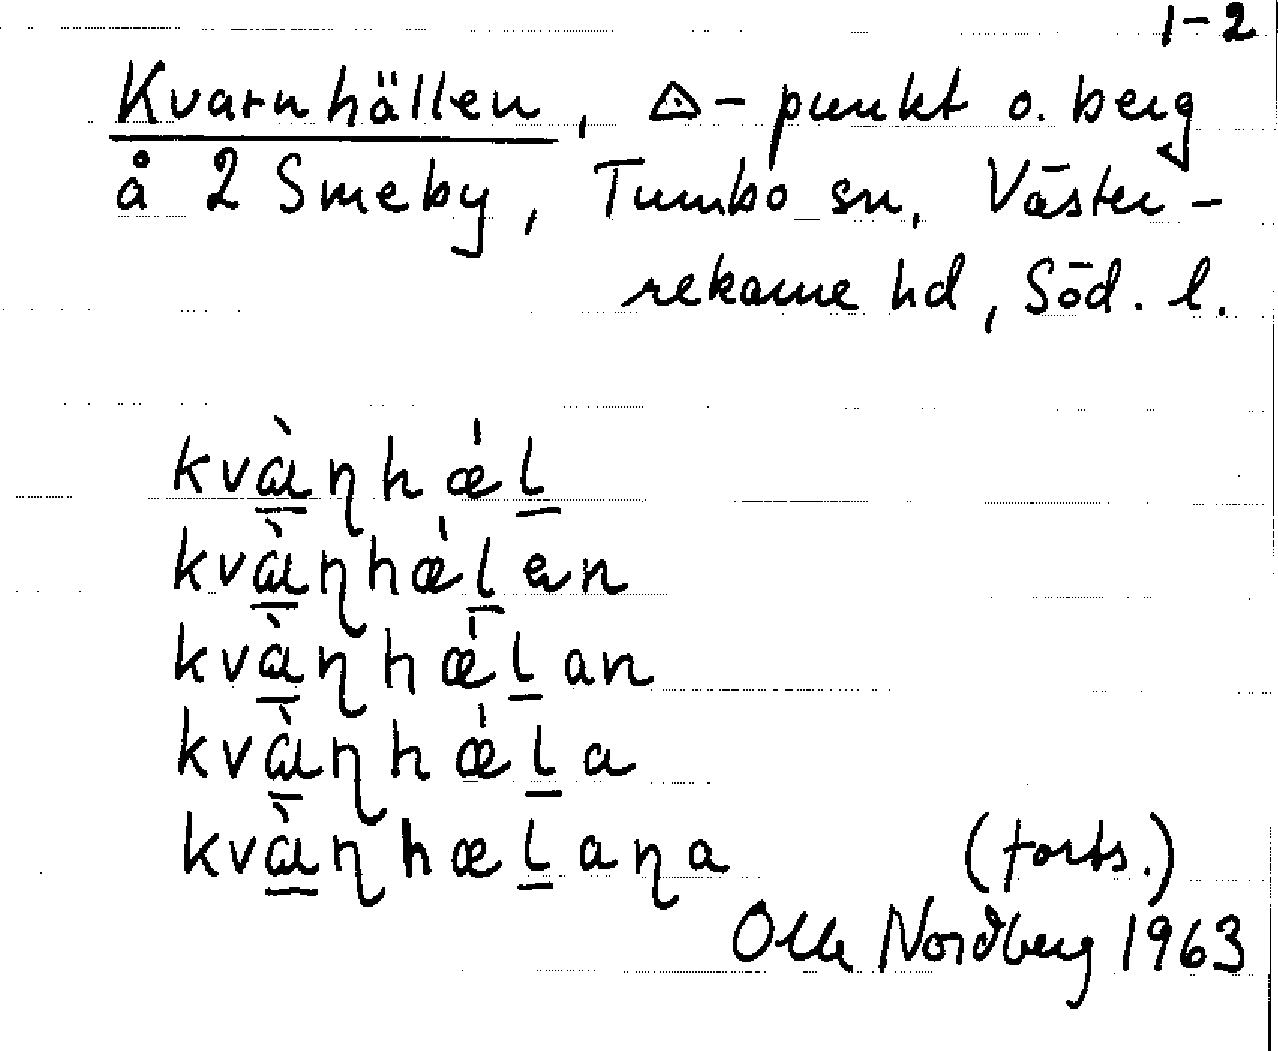 1-2
Kvarnhällen, △-punkt o. berg
å 2 Smeby, Tumbo sn, Väster-
rekarne hd, Söd. l.
kvàɳhǽl
kvàɳhǽlen
kvàɳhǽlan
kvàɳhǽla
kvàɳhælaɳa
(forts.)
Olle Nordberg 1963